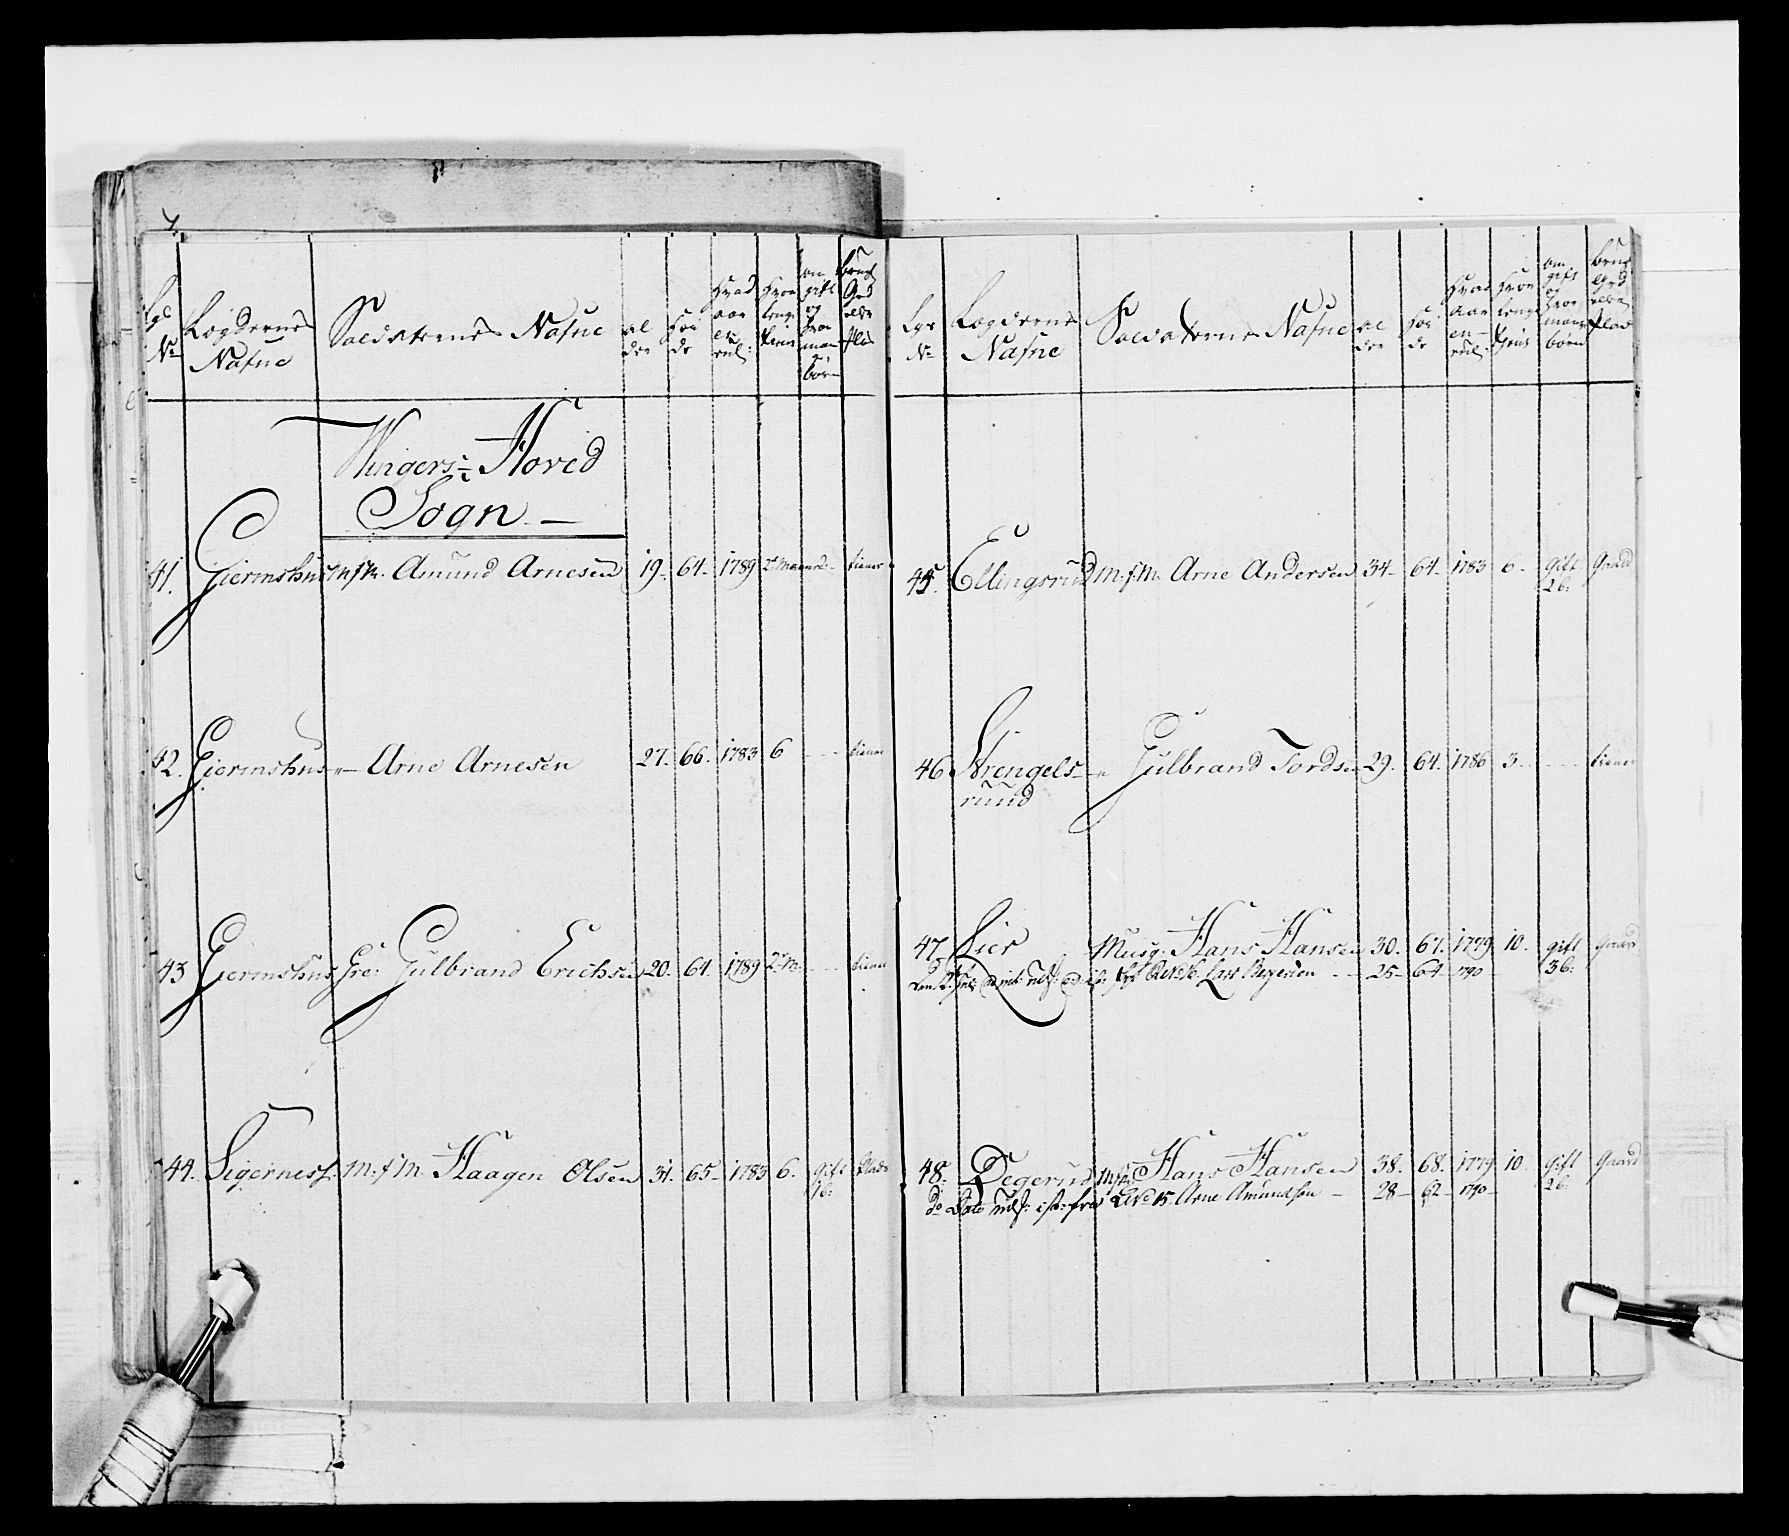 Lgs No Lægdernes Nafne Soldaternes Nafne al der Høi de Hvad aar en rul: Hvor lenge tient om gift og hvor mange børn brug Grd eller Plas
Wingers Hoved
Sogn
41. Giermshus M:f:M. Amund Arnesen 19. 64. 1789 2 Maaned tiener
42. Giermshus Arne Arnesen 27. 66. 1783 6 tiener
43 Giermshus Gre: Gulbrand Erichsen 20. 64. 1789 2 M. tiener
44. Sigernes M:f:M Haagen Olsen 31. 65. 1783 6. gift 1b: Plads
Lgs No Lægdernes Nafne Soldaternes Nafne al der Høi de Hvad aar en rul: Hvor lenge tient om gift og hvor mange børn brug Grd eller Plads
45. Ellingsrud M:f:M. Arne Andersen 34. 64. 1783 6. gift 2b: Gaard
46 Strengels Gulbrand Tords: 29. 64. 1786 3. tiener
ruud
47. Lier Musq: Hans Hansen 30. 67. 1779 10. gift 3b: Gaard
Lars 25 64 1790
48. Degerud M:f:M: Hans Hansen 38. 68. 1779 10. gift 2b: Gaard
do Dato Udsk: i st: fra Lævd 15. Arne Amundsen 28 62 1790